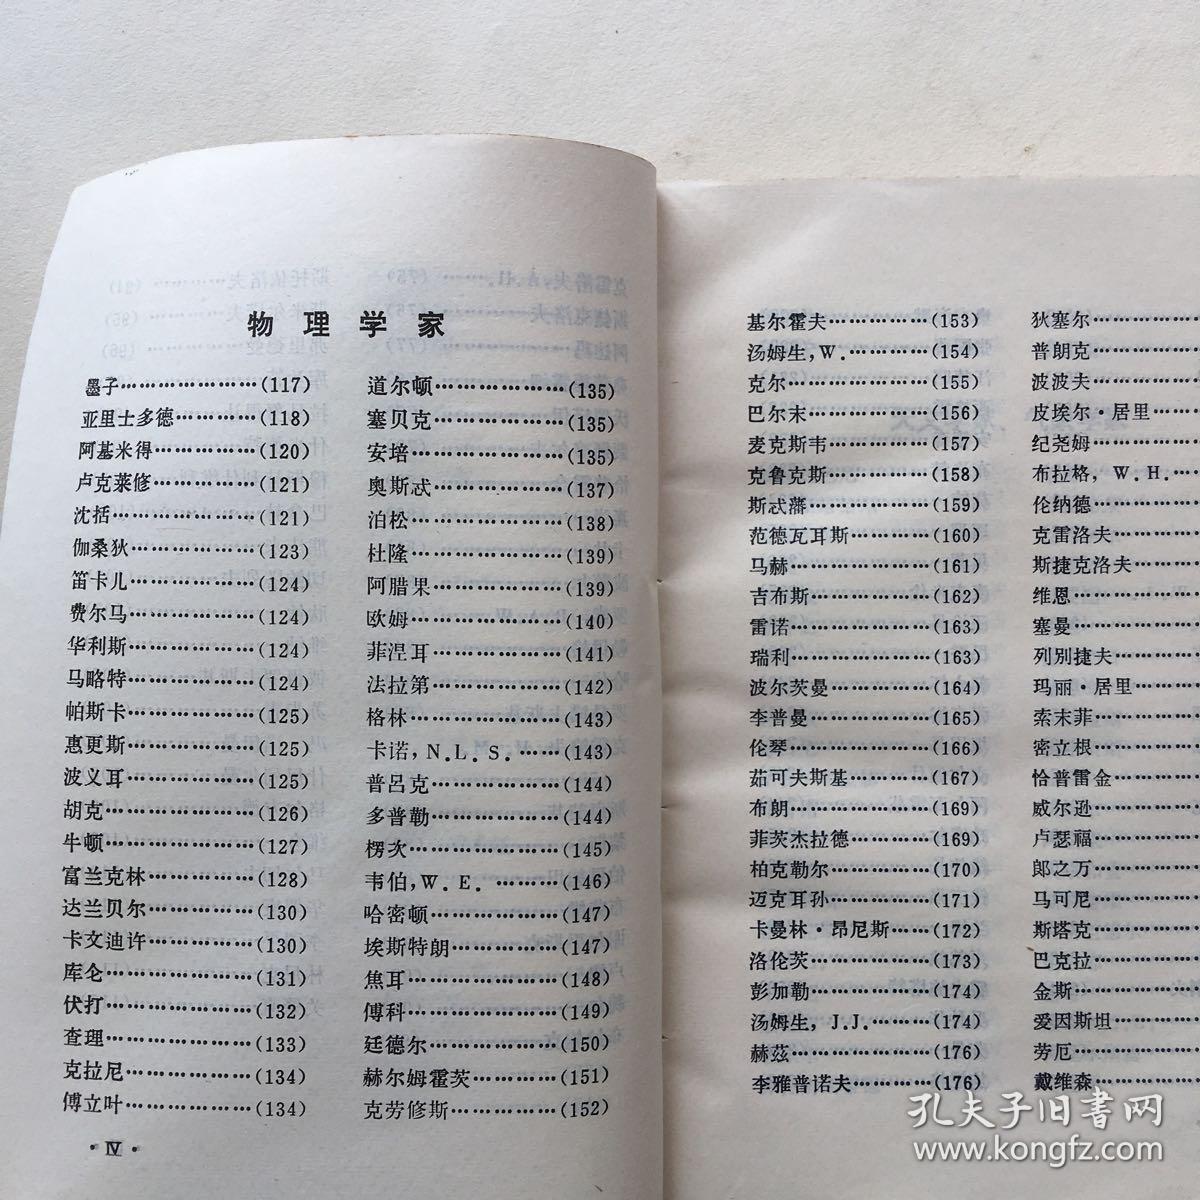 物理学家
墨子…………………(117)
亚里士多德……………(118)
阿基米得………………(120)
卢克莱修………………(121)
沈括…………………(121)
伽桑狄………………(123)
笛卡儿………………(124)
费尔马………………(124)
华利斯………………(124)
马略特………………(124)
帕斯卡………………(125)
惠更斯………………(125)
波义耳………………(125)
胡克…………………(126)
牛顿…………………(127)
富兰克林……………(128)
达兰贝尔……………(130)
卡文迪许……………(130)
库仑…………………(131)
伏打…………………(132)
查理…………………(133)
克拉尼………………(134)
傅立叶………………(134)
道尔顿………………(135)
塞贝克………………(135)
安培…………………(135)
奥斯忒………………(137)
泊松…………………(138)
杜隆…………………(139)
阿腊果………………(139)
欧姆…………………(140)
菲涅耳………………(141)
法拉第………………(142)
格林…………………(143)
卡诺,N.L.S.……(143)
普吕克………………(144)
多普勒………………(144)
楞次…………………(145)
韦伯,W.E.………(146)
哈密顿………………(147)
埃斯特朗……………(147)
焦耳…………………(148)
傅科…………………(149)
廷德尔………………(150)
赫尔姆霍茨…………(151)
克劳修斯……………(152)
·Ⅳ·
基尔霍夫……………(153)
汤姆生,W.…………(154)
克尔…………………(155)
巴尔末………………(156)
麦克斯韦……………(157)
克鲁克斯……………(158)
斯忒藩………………(159)
范德瓦耳斯…………(160)
马赫…………………(161)
吉布斯………………(162)
雷诺…………………(163)
瑞利…………………(163)
波尔茨曼……………(164)
李普曼………………(165)
伦琴…………………(166)
茹可夫斯基…………(167)
布朗…………………(169)
菲茨杰拉德…………(169)
柏克勒尔……………(170)
迈克耳孙……………(171)
卡曼林·昂尼斯……(172)
洛伦茨………………(173)
彭加勒………………(174)
汤姆生,J.J.………(174)
赫兹…………………(176)
李雅普诺夫…………(176)
狄塞尔…………
普朗克…………
波波夫…………
皮埃尔·居里……
纪尧姆…………
布拉格,W.H.…
伦纳德…………
克雷洛夫………
斯捷克洛夫……
维恩……………
塞曼……………
列别捷夫………
玛丽·居里……
索末菲…………
密立根…………
恰普雷金………
威尔逊…………
卢瑟福…………
郎之万…………
马可尼…………
斯塔克…………
巴克拉…………
金斯……………
爱因斯坦………
劳厄……………
戴维森…………
孔夫子旧书网
www.kongfz.com